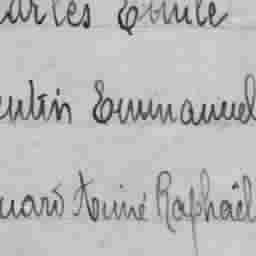 arles Emile
entin Emmanuel
uard Aimé Raphaël